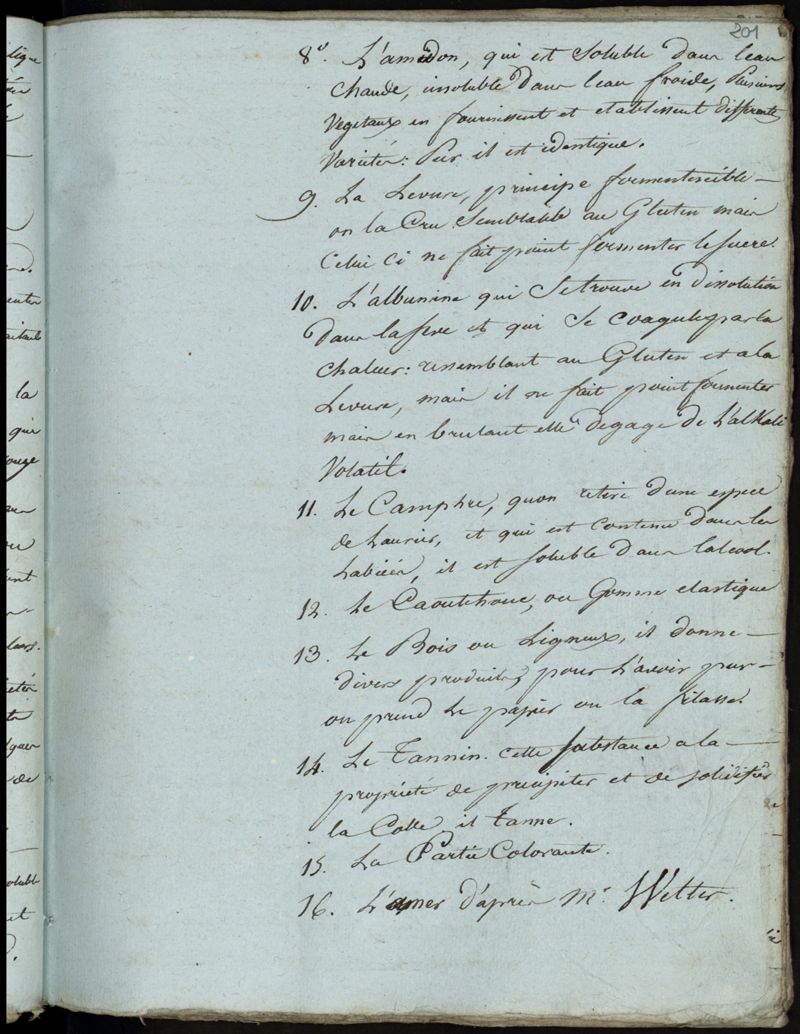 201
8°. L'amidon, qui est soluble dans leau
chaude, insoluble dans leau froide, Plusieurs
Vegetaux en fournissent et etablissent differente
Varietés: Pur il est identique.
9. La Levure, principe fermentescible —
on la Cru Semblable au Gluten mais
Celui Ci ne fait point fermenter le sucre.
10. L'albumine qui Se trouve en dissolution
dans la seve et qui Se coagule par la
chaleur: ressemblant au Gluten et a la
Levure, mais il ne fait point fermenter
mais en brulant elle degage de L'alkali
Volatil.
11. Le Camphre, quon retire dune espece
de Laurier, et qui est contenu dans les
Labiées, il est soluble dans lalcool.
12. Le Caoutchouc, ou Gomme elastique
13. Le Bois ou Ligneux, il donne —
divers produits, pour L'avoir pur —
on prend le papier ou la filasse.
14. Le Tannin. cette substance a la —
propriété de precipiter et de solidifier
la Colle il Tanne.
15. La Partie Colorante.
16. L'amer d'après Mr. Welter.